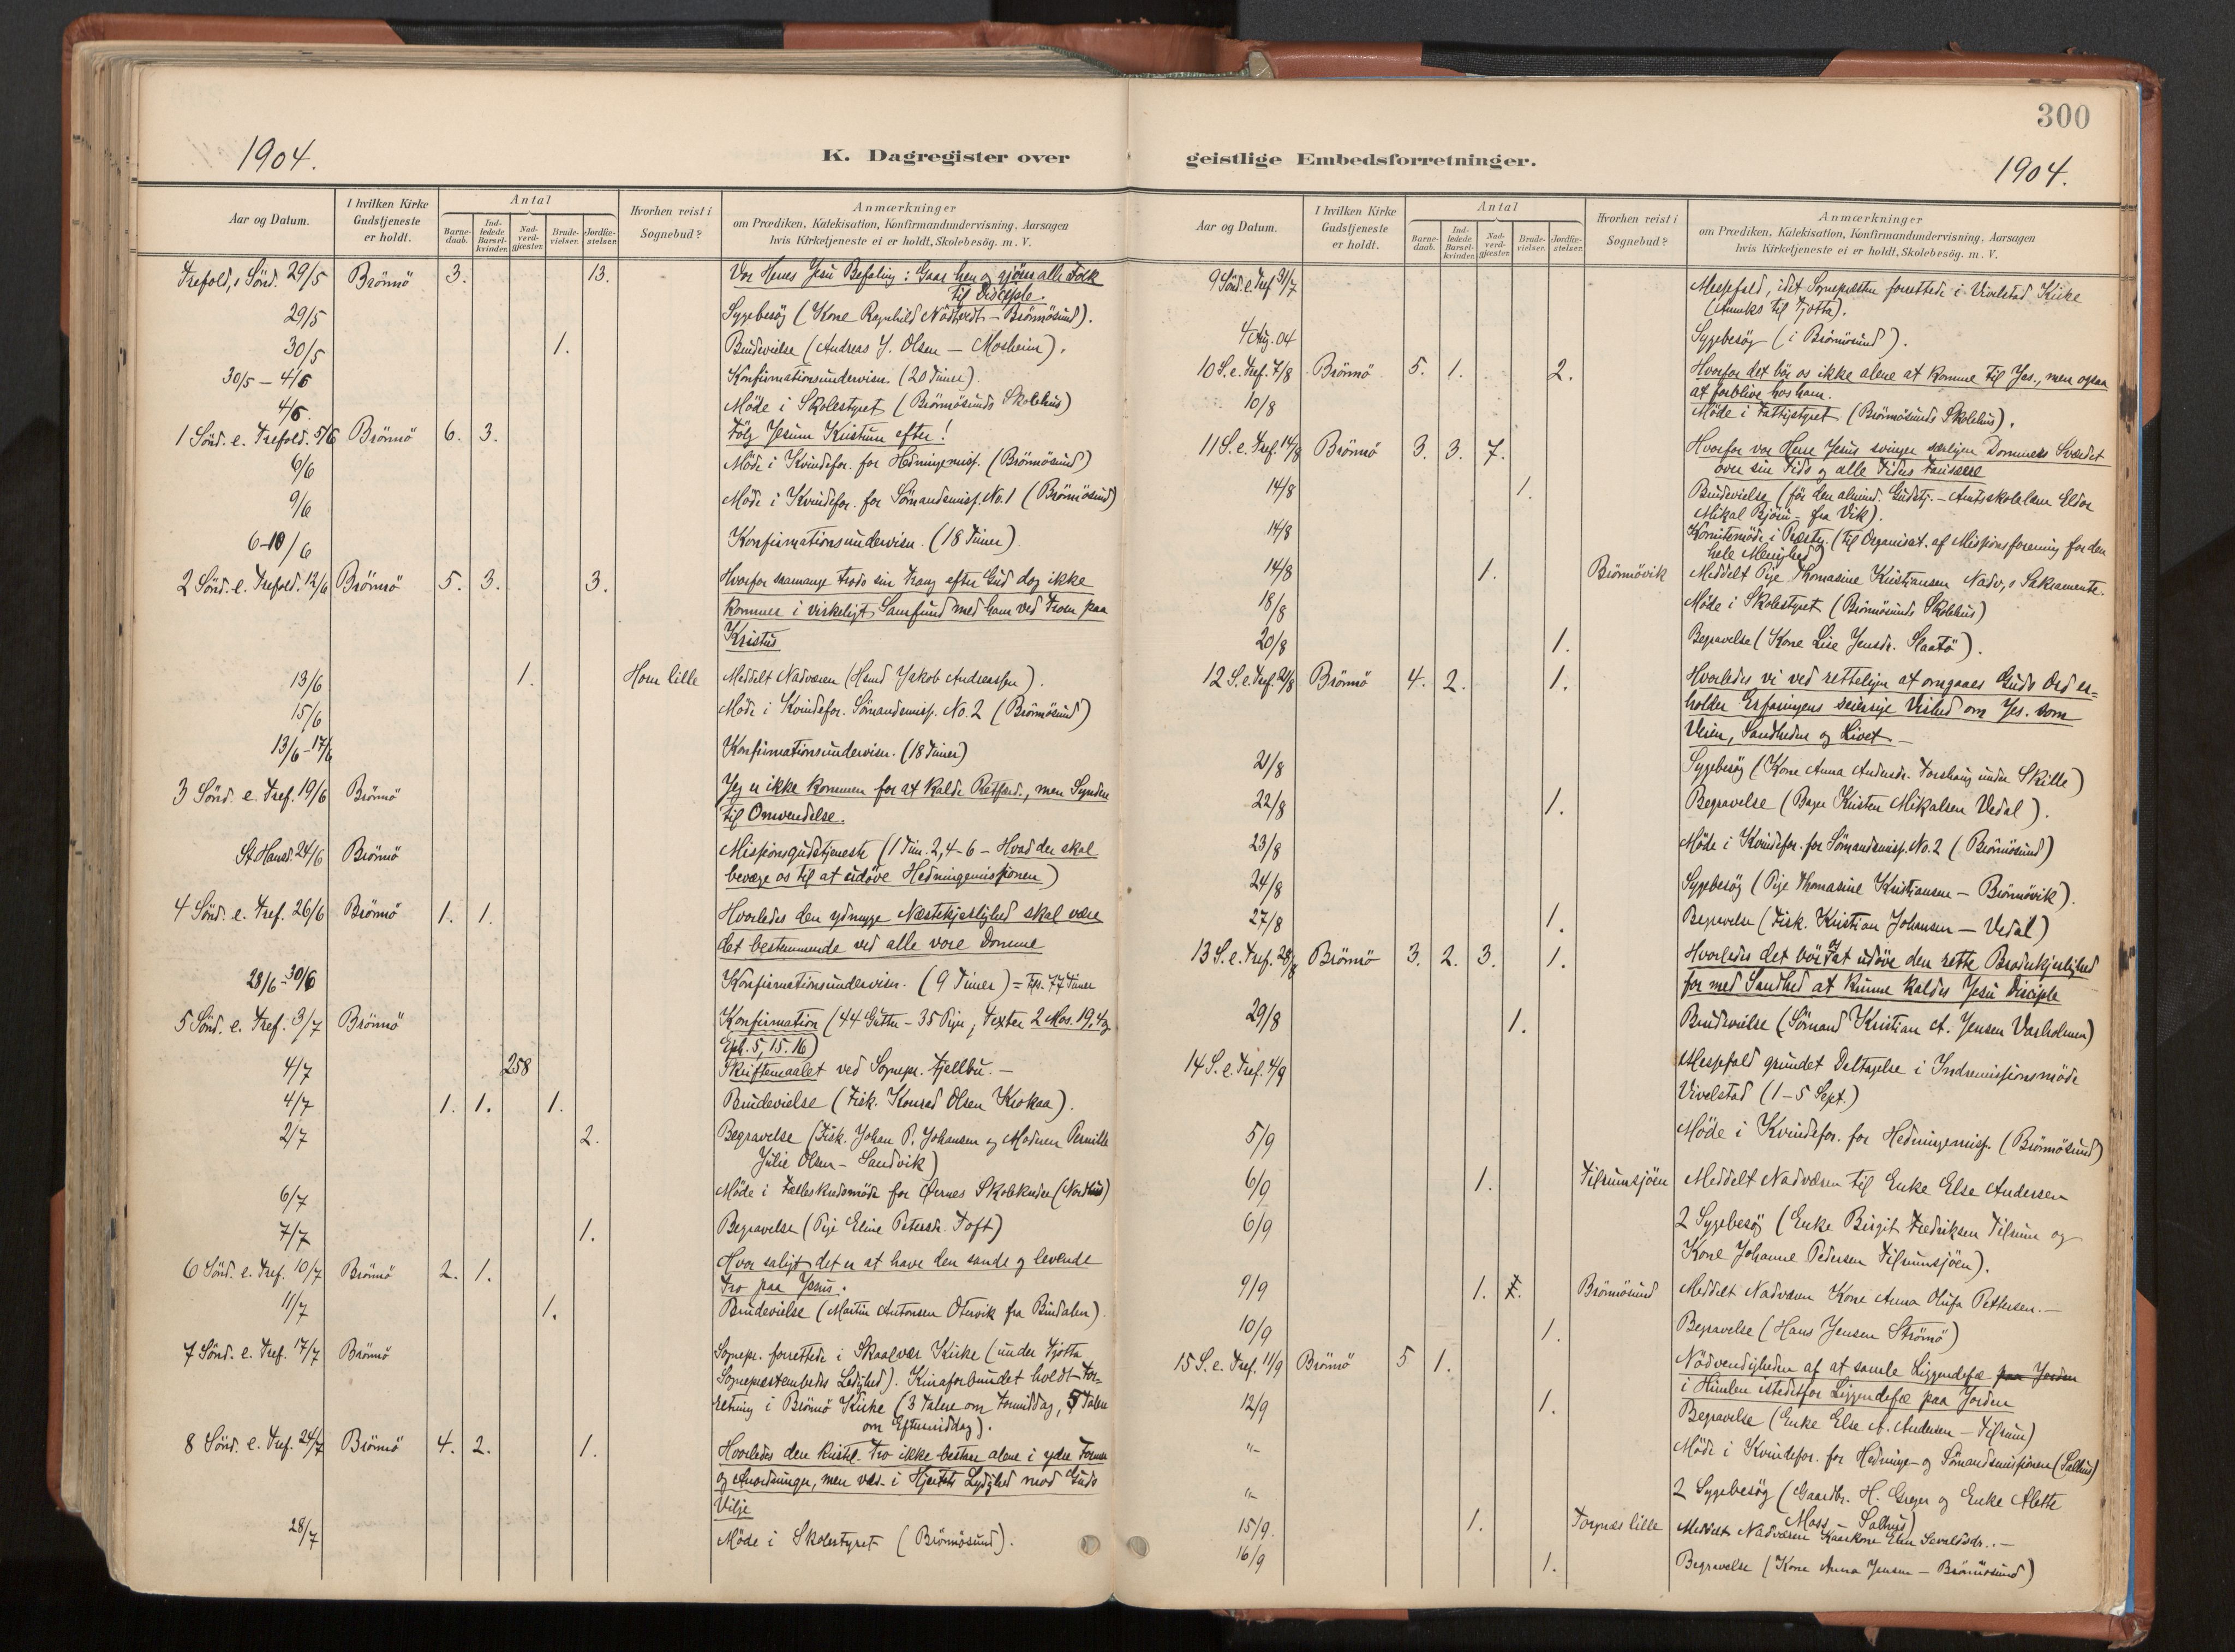 300
1904.
K. Dagregister over
geistlige Embedsforretninger.
1904.
Aar og Datum.
I hvilken Kirke Gudstjeneste er holdt.
Antal
Barne-daab.
Ind-ledede Barsel-kvinder.
Nad-verd-gjester.
Brude-vielser.
Jordfæ-stelser.
Hvorhen reist i Sognebud?
Anmærkninger
om Prædiken, Katekisation, Konfirmandundervisning, Aarsagen
hvis Kirketjeneste ei er holdt, Skolebesøg. m. V.
Trefold. s Sönd. 29/5 Brönnö 3. 13. Vor Herres Jesu Befaling: Gaar hen og gjörer alle Folk
til Disciple.
29/5 Sygebesög (Kone Ragnhild Nödtvedt - Brönnösund).
30/5 1. Brudevielse (Andreas J. Olsen - Mosheim).
30/5 - 4/6 Konfirmationsundervisn. (20 Timer).
4/6. Möde i Skolestyret (Brönnösunds Skolehus)
1 Sönd. e. Trefold. 5/6 Brönnö 6. 3. Fölg Jesum Kristum efter!
6/6 Möde i Kvindefor. for Hedningemisj. (Brönnösund)
9/6 Möde i Kvindefor. for Sömandsmisj. No. 1 (Brönnösund)
6-10/6 Konfirmationsundervisn. (18 Timer)
2 Sönd. e. Trefold. 12/6 Brönnö 5. 3. 3. Hvorfor saamange trods sin Trang efter Gud dog ikke
kommer i virkeligt Samfund med ham ved Troen paa
Kristus
13/6 1. Horn lille Meddelt Nadveren (Hmd Jakob Andreassen).
15/6 Möde i Kvindefor. Sömandsmisj. No. 2 (Brönnösund)
13/6 - 17/6 Konfirmationsundervisn. (18 Timer)
3 Sönd. e. Tref. 19/6 Brönnö Jeg er ikke kommen for at kalde Retfærd., men Syndere
til Omvendelse.
St. Hansd. 24/6 Brönnö Missionsgudstjeneste (1 Tim. 2, 4-6 - Hvad der skal
bevæge os til at udöve Hedningemissionen)
4 Sönd. e. Tref. 26/6 Brönnö 1. 1. Hvorledes den ydmyge Næstekjærlighed skal være
det bestemmende ved alle vore Domme
28/6 - 30/6 Konfirmationsundervisn. (9 Timer) = Tils. 77 Timer
5 Sönd. e. Tref. 3/7 Brönnö Konfirmation (44 Gutter - 35 Piger, Texter 2 Mos. 19, 4 og
Eph. 5, 15. 16)
4/7 258 Skriftemaalet ved Sognepr. Fjellbu. -
4/7 1. 1. 1. Brudevielse (Fisk. Konrad Olsen Krokaa).
2/7 2. Begravelse (Fisk. Johan P. Johansen og Moderen Pernille
Julie Olsen - Sandvik)
6/7 Möde i Fælleskredsmöde for Øernes Skolekredse (Nordhus)
7/7 1. Begravelse (Pige Eline Petersdr. Toft)
6 Sönd. e. Tref. 10/7 Brönnö 2. 1. Hvor saligt det er at have den sande og levende
Tro paa Jesus.
11/7 1. Brudevielse (Martin Antonsen Otervik fra Bindalen)
7 Sönd. e. Tref. 17/7 Brönnö Sognepr. forrettede i Skaalvær Kirke (under Tjötta
Sogneprestembedes Ledighed). Kinaforbundet holdt For-
retning i Brönnö Kirke (3 Talere om Formiddag, 5 Talere
om Eftermiddag).
8 Sönd. e. Tref. 24/7 Brönnö 4. 2. 1. Hvorledes den kristel. Tro ikke bestaar alene i ydre Former
og Anordninger, men væs. i Hjertets Lydighed mod Guds
Vilje
28/7 Möde i Skolestyret (Brönnösund).
Aar og Datum.
I hvilken Kirke Gudstjeneste er holdt.
Antal
Barne-daab.
Ind-ledede Barsel-kvinder.
Nad-verd-gjester.
Brude-vielser.
Jordfæ-stelser.
Hvorhen reist i Sognebud?
Anmærkninger
om Prædiken, Katekisation, Konfirmandundervisning, Aarsagen
hvis Kirketjeneste ei er holdt, Skolebesøg. m. V.
9 Sönd. e. Tref. 31/7 Messefald, idet Sognepresten forrettede i Vivelstad Kirke
(Anneks til Tjötta).
4 Aug. 04 Sygebesög (i Brönnösund).
10 S. e. Tref. 7/8 Brönnö 5. 1. 2. Hvorfor det bör os ikke alene at komme til Jes., men ogsaa
at forblive hos ham.
10/8 Möde i Fattigstyret (Brönnösunds Skolehus).
11 S. e. Tref. 14/8 Brönnö 3. 3. 7. Hvorfor vor Herre Jesus svinger Dommens Sværdet
over sin Tids og alle Tiders Farisæere
14/8 1. Brudevielse (för den almind. Gudstj. - Amtsskolelærer Eldor
Mikal Björu - fra Vik).
14/8 Komitemöde i Præstg. (til Organisat. af Missionsforening for den
hele Menighed
14/8 1. Brönnövik Meddelt Pige Thomasine Kristiansen Nadv. s Sakramente.
18/8 Möde i Skolestyret (Brönnösunds Skolehus)
20/8 1. Begravelse (Kone Lise Jensdr. Slaatö).
12 S. e. Tref. 21/8 Brönnö 4. 2. 1. Hvorledes vi ved retteligen at omgaaes Guds Ord er-
holder Erfaringens seiersrige Vished om Jes. som
Veien, Sandheden og Livet -
21/8 Sygebesög (Kone Anna Andersdr. Torshaug under Skille)
22/8 1. Begravelse (Bager Kristen Mikalsen Vedal).
23/8 Möde i Kvindefor. for Sömandsmisj. No. 2 (Brönnösund)
24/8 Sygebesög (Pige Thomasine Kristiansen - Brönnövik).
27/8 1. Begravelse (Fisk. Kristian Johansen - Vedal)
13 S. e. Tref. 28/8 Brönnö 3. 2. 3. 1. Hvorledes det bör os at udöve den rette Broderkjerlighed
for med Sandhed at kunne kaldes Jesu Disciple
29/8 1. Brudevielse (Sömand Kristian A. Jensen Varholmen)
14 S. e. Tref. 4/9 Messefald grundet Deltagelse i Indremissionsmöde
Vivelstad (1-5 Sept.)
5/9 Möde i Kvindefor. for Hedningemisj. (Brönnösund)
6/9 1. Tilrumsjöen Meddelt Nadveren til Enke Else Andersen
6/9 2 Sygebesög (Enke Birgit Fredriksen Tilrum og
Kone Johanne Pedersen Tilrumsjöen).
9/9 1. Brönnösund Meddelt Nadveren Kone Anna Olufa Pettersen. -
10/9 1. Begravelse (Hans Jensen Strömö)
15 S. e. Tref. 11/9 Brönnö 5 1. Nödvendigheden af at samle Liggendefæ paa Jorden
i Himlen istedetfor Liggendefæ paa Jorden
12/9 1. Begravelse (Enke Else A. Andersen - Tilrum)
"- Möde i Kvindefor. for Hedninge- og Sömandsmissionen (Salhus)
"- 2 Sygebesög (Gaardbr. H. Greger og Enke Alette
Moss - Salhus)
15/9. 1. Torgnes lille Meddelt Nadveren Kaarkone Elen Sevaldsdr. -
16/9 1. Begravelse (Kone Anna Jensen - Brönnösund)